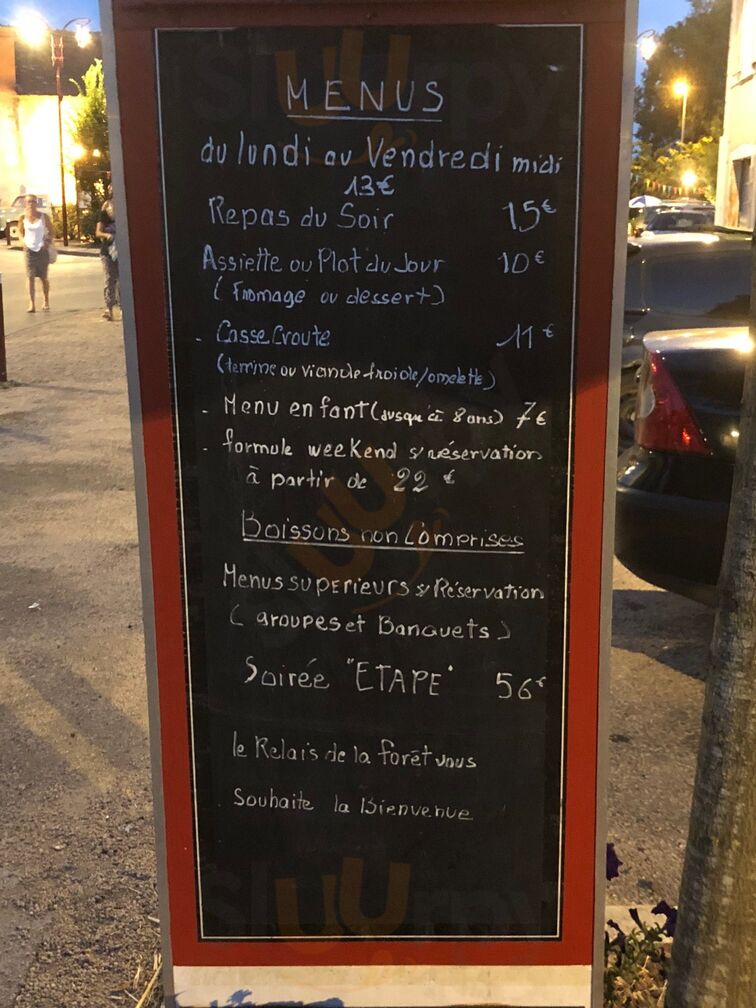 MENUS
du lundi au Vendredi midi
13€
Repas du Soir 15€
Assiette ou Plat du Jour 10€
(fromage ou dessert)
- Casse Croute 11€
(terrine ou viande froide/omelette)
- Menu enfant (jusqu'à 8 ans) 7€
- formule weekend s/réservation
à partir de 22 €
Boissons non Comprises
Menus SUPERIEURS s/Réservation
(Groupes et Banquets)
Soirée "ETAPE" 56€
le Relais de la forêt vous
Souhaite la Bienvenue